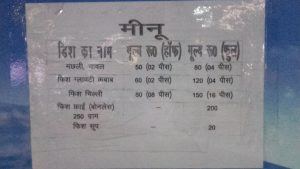 मीनू
डिश का नाम मूल्य रू0 (हॉफ) मूल्य रू0 (फुल)
मछली चावल 50 (02 पीस) 80 (04 पीस)
फिश 60 (02 पीस) 120 (04 पीस)
फिश चिल्ली 80 (08 पीस) 150 (16 पीस)
फिश फ्राई (बोनलेस) 200
250 ग्राम
फिश सूप 20